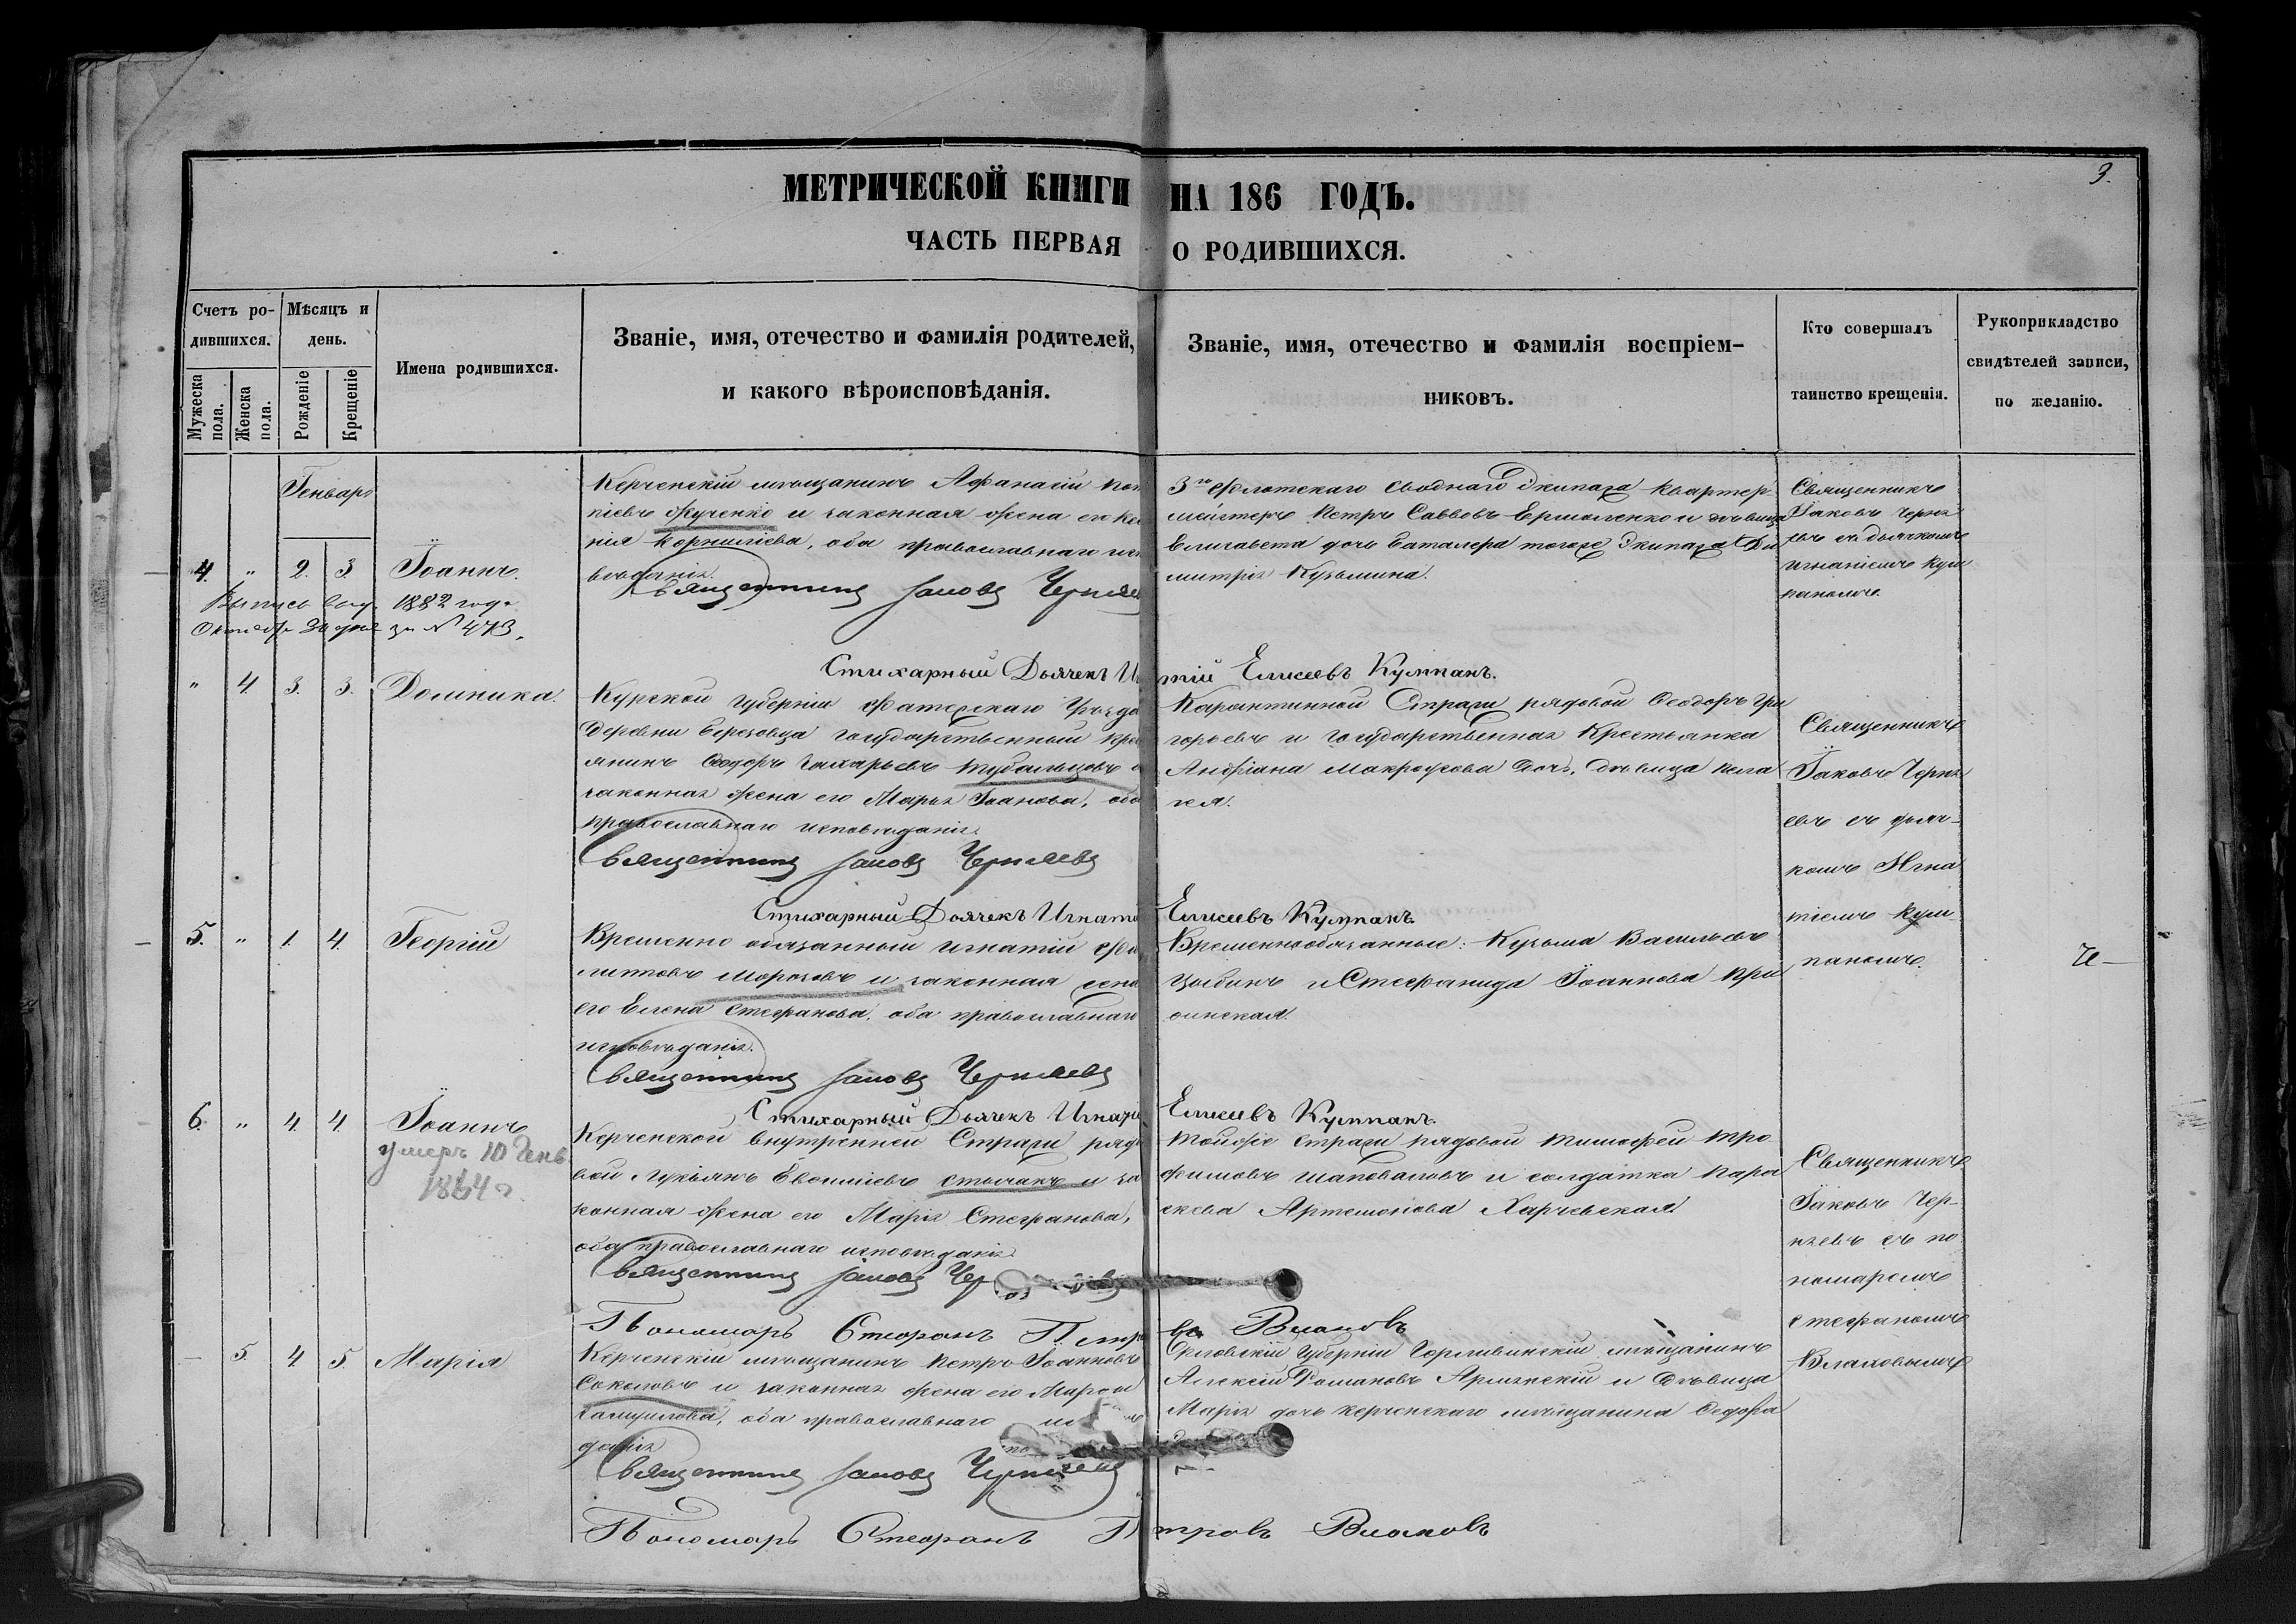 3.
МЕТРИЧЕСКОЙ КНИГИ НА 186 ГОДЪ.
ЧАСТЬ ПЕРВАЯ О РОДИВШИХСЯ.
Счетъ ро-
дившихся.
Мужеска пола.
Женска пола.
Мѣсяцъ и
день.
Рожденіе
Крещеніе
Имена родившихся.
Званіе, имя, отечество и фамилія родителей,
и какого вѣроисповѣданія.
Званіе, имя, отечество и фамилія воспріем-
никовъ.
Кто совершалъ
таинство крещенія.
Рукоприкладство
свидѣтелей записи,
по желанію.
Генварь
4. " 2. 3. Іоаннъ.
Выпись выд. 1882 года
Октября 30 дня за № 473.
Керченскій мѣщанинъ Афанасій
піевъ Фученко и законная жена его
нія Корниліева, оба православнаго
вѣданія.
Священникъ Іаковъ
3го Флотскаго Своднаго Экипажа Квартер-
мейстеръ Петръ Саввовъ Ермоленко и дѣвица
Елисавета дочь Баталера тогоже Экипажа Ди
митрія Кузьмина.
Священникъ
Іаковъ Черня
евъ съ дьячкомъ
Игнатіемъ Кул
паномъ.
Стихарный Дьячекъ И тій Елисеевъ Кулпанъ.
" 4. 3. 3. Домника.
Курской Губерніи Фатежскаго Уѣзда
Деревни Березовца Государственный Кре
янинъ Ѳеодоръ Захарьевъ
законная жена его Марія Іоанова, оба
православнаго исповѣданія.
Священникъ Іаковъ Черняевъ
Карантинной Стражи рядовой Ѳеодоръ Гри
горьевъ и Государственная Крестьянка
Андріана Макрофова Дочь, дѣвица Пела
гея.
Священникъ
Іаковъ Черня
евъ съ дьяч-
комъ Игна
тіемъ Кул-
паномъ.
Стихарный Дьячекъ Игнаті Елисеевъ Кулпанъ.
5. " 1. 4. Георгій
Временно обязанный Игнатій Фи
липповъ Морозовъ и законная жена
его Елена Стефанова, оба православнаго
исповѣданія.
Священникъ Іаковъ Черняевъ
Временнообязанные: Кузьма Васильевъ
Цыбинъ и Стефанида Іоаннова При
Стихарный Дьячекъ Игнаті Елисеевъ Кулпанъ.
6. " 4. 4. Іоаннъ
умеръ 10 Генв
1864 г.
Керченской внутренней Стражи рядо
вой Лукьянъ Евфиміевъ и за
конная жена его Марія Стефанова,
оба православнаго исповѣданія.
Священникъ Іаковъ Чер
Тойже Стражи рядовой Тимофей Тро
фимовъ Шаповаловъ и солдатка Пара
скева Артемонова Харчевская.
Священникъ
Іаковъ Чер-
няевъ съ по
номаремъ
Стефаномъ
Влаховымъ
Пономарь Стефанъ Петро въ Влаховъ
5. 4 5. Марія
Керченскій мѣщанинъ Петръ Іоанновъ
Соколовъ и законная жена его Марѳа
Самуилова, оба православнаго испо
данія
Священникъ Іаковъ Черняевъ
Орловской Губерніи мѣщанинъ
Алексѣй Романовъ и Дѣвица
Марія дочь Керченскаго мѣщанина Ѳедора
Пономарь Стефанъ П тровъ Влаховъ